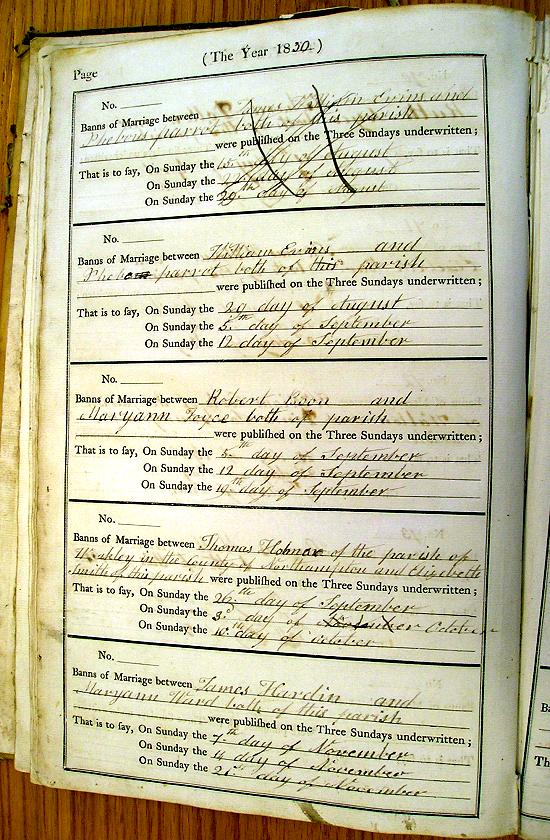 (The Year 1830.)
Page
No.
Banns of Marriage between William Evins and
parrot both of this parish
were published on the Three Sundays underwritten;
That is to say, On Sunday the 15th day of August
On Sunday the 22 day of August
On Sunday the 29th day of August
No.
Banns of Marriage between William Evins and
parrot both of this parish
were published on the Three Sundays underwritten;
That is to say, On Sunday the 29 day of August
On Sunday the 5th day of September
On Sunday the 12 day of September
No.
Banns of Marriage between Robert Coon and
Maryann Joyce both of parish
were published on the Three Sundays underwritten;
That is to say, On Sunday the 5th day of September
On Sunday the 12 day of September
On Sunday the 19th day of September
No.
Banns of Marriage between Thomas of the parish of
in the county of Northampton and Elizabeth
Smith of this parish were published on the Three Sundays underwritten;
That is to say, On Sunday the 26th day of September
On Sunday the 3d day of November October
On Sunday the 10th day of October
No.
Banns of Marriage between James Hardin and
Maryann Ward both of this parish
were published on the Three Sundays underwritten;
That is to say, On Sunday the 7th day of November
On Sunday the 14 day of November
On Sunday the 21st day of November